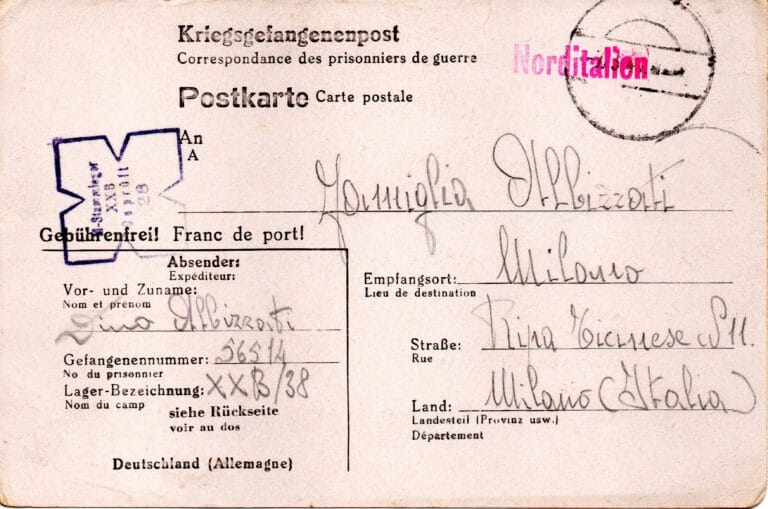 Kriegsgefangenenpost
Correspondance des prisonniers de guerre
Norditalien
Postkarte Carte postale
An
A
Famiglia Albizzati
M-Stammlager
XXB
Geprüft
28
Gebührenfrei! Franc de port!
Absender:
Expéditeur:
Vor- und Zuname:
Nom et prénom
Dino Albizzati
Gefangenennummer: 56514
No du prisonnier
Lager-Bezeichnung: XXB/38
Nom du camp
siehe Rückseite
voir au dos
Deutschland (Allemagne)
Empfangsort: Milano
Lieu de destination
Straße: Ripa Ticinese N 11.
Rue
Land: Milano (Italia)
Landesteil (Provinz usw.)
Département